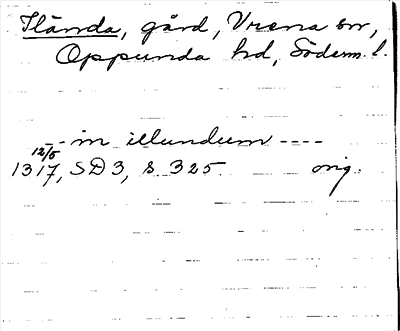 Ilända, gård, Vrena sn,
Oppunda hd, Söderm. l.
-- in illundum ----
12/5
1317, SD 3, s. 325. orig.